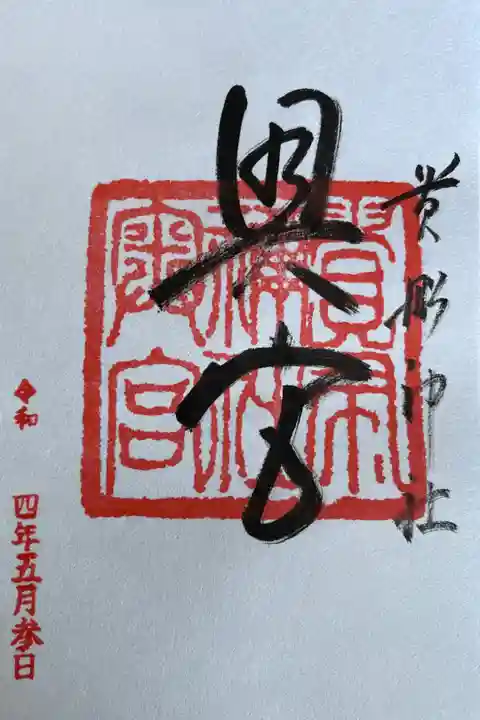 貴船神社
奥宮
貴布
奥宮
令和
四年五月参日